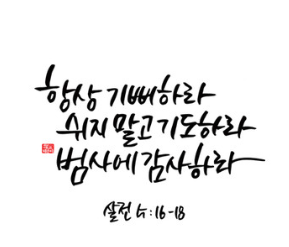 항상 기뻐하라
쉬지 말고 기도하라
범사에 감사하라
살전 5:16-18